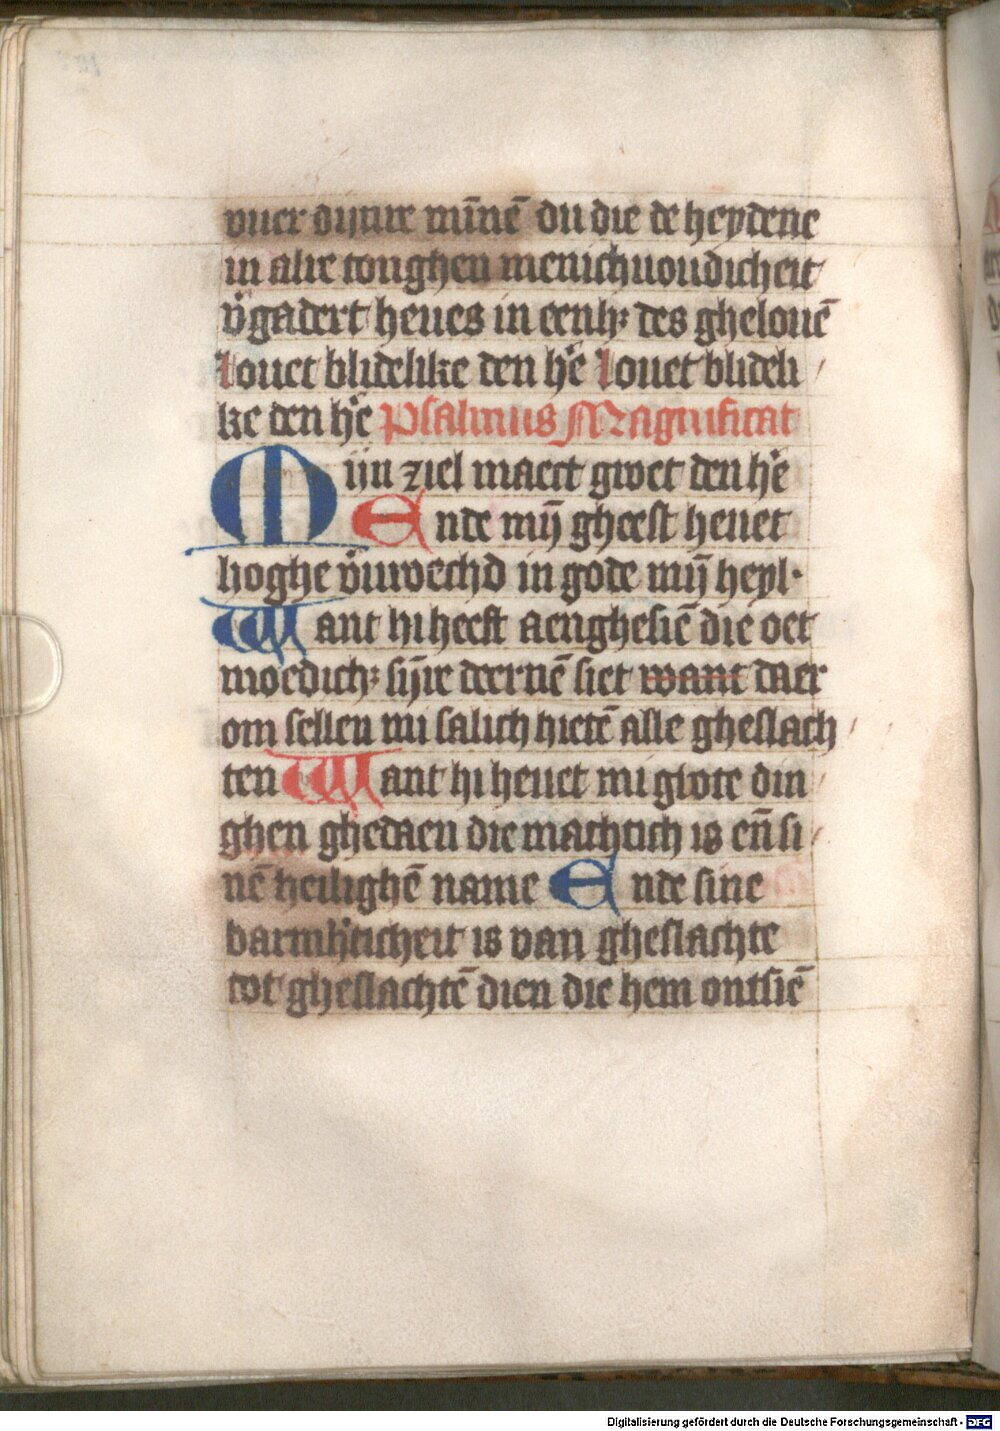 vuer dijnre mīnē du die de heydene
in alre tonghen menichuoudicheit
v̄gadert heues in eenh; des ghelouē
louet blidelike den he̅ louet blideli
ke den he̅ Psalmus Magnificat
Mijn ziel maect groet den he̅
Ende mȳ gheest heuet
hoghe v̄urvechd in gode mȳ heyl·
Want hi heeft aenghesiē die oet
moedich; sȳre deernē siet want daer
om sellen mi salich hietē alle gheslach
ten Want hi heuet mi grote din
ghen ghedaen die machtich is eñ si
nē heilighē name Ende sine
barmh̄ticheit is van gheslachte
tot gheslachtē dien die hem ontsiē
Digitalisierung gefördert durch die Deutsche Forschungsgemeinschaft - DFG